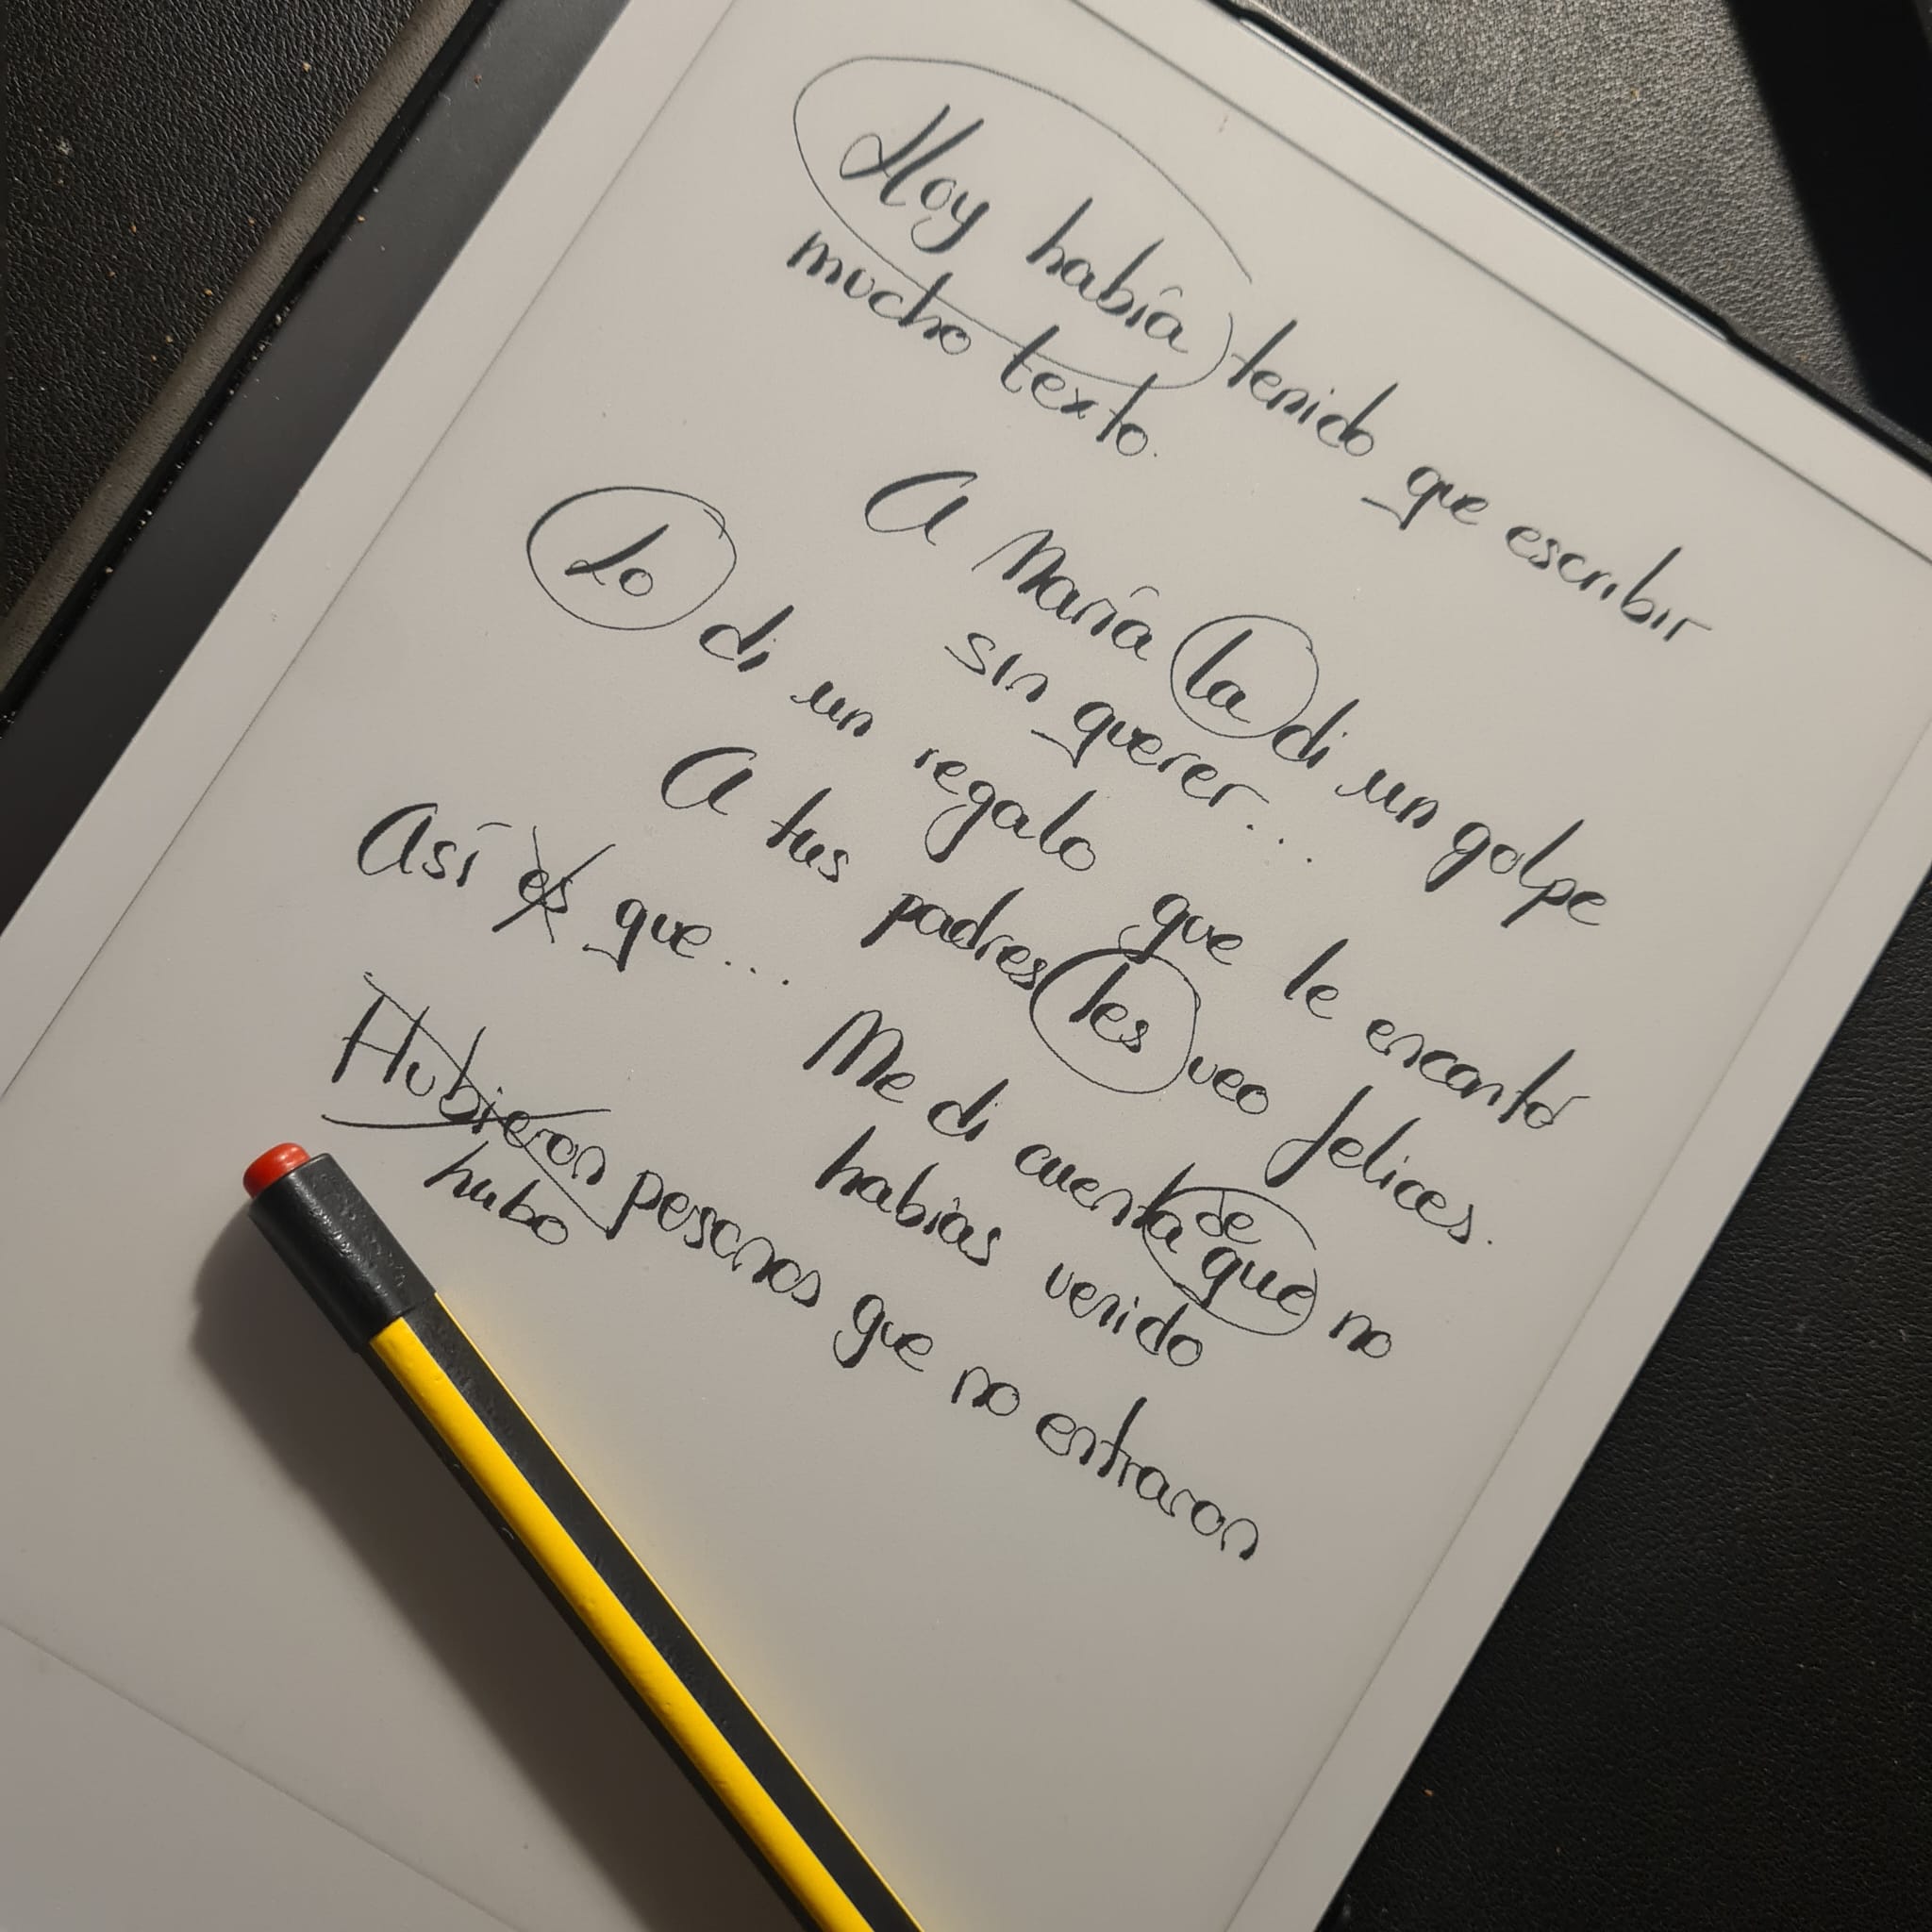 Hoy había tenido que escribir
mucho texto.
A María la di un golpe
sin querer...
Lo di un regalo que le encantó
A tus padres les veo felices.
Así es que...
Me di cuenta de que no
habías venido
Hubieron personas que no entraron
hubo